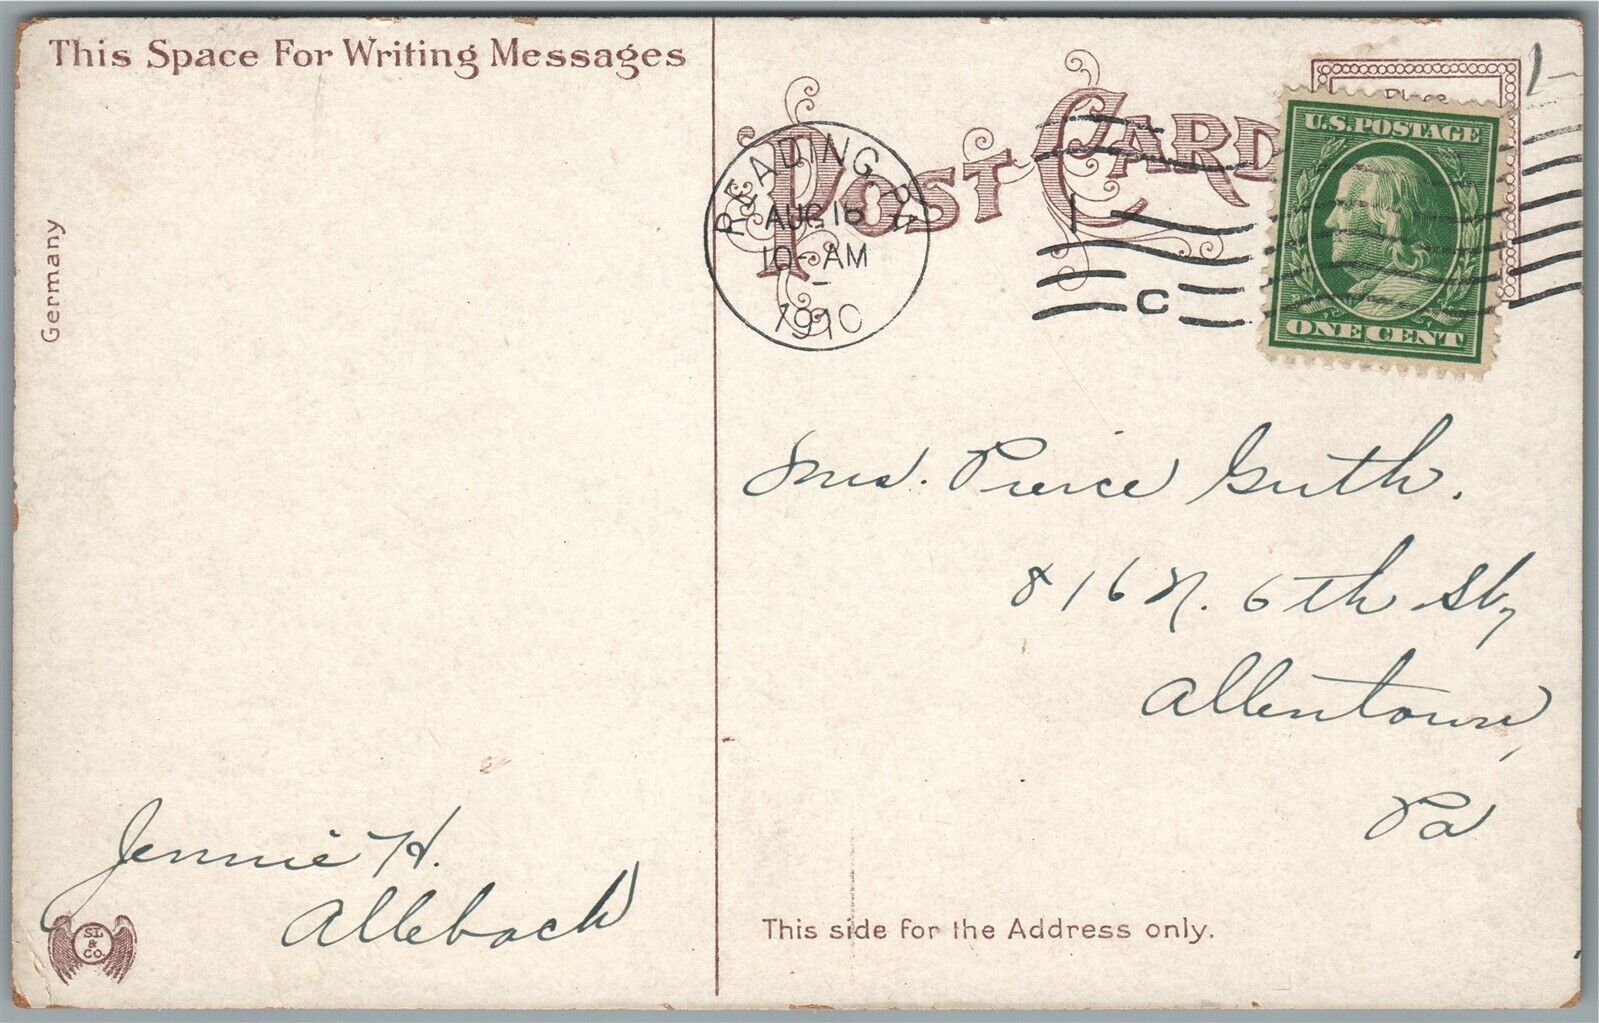 This Space For Writing Messages
Germany
Jennie H.
Allebach
SL
&
Co.
POST CARD
READING, PA
AUG 16
10-AM
1910
1
C
Place
U.S. POSTAGE
ONE CENT
1-
Mrs. Pierce Guth.
816 N. 6th St,
Allentown,
Pa
This side for the Address only.